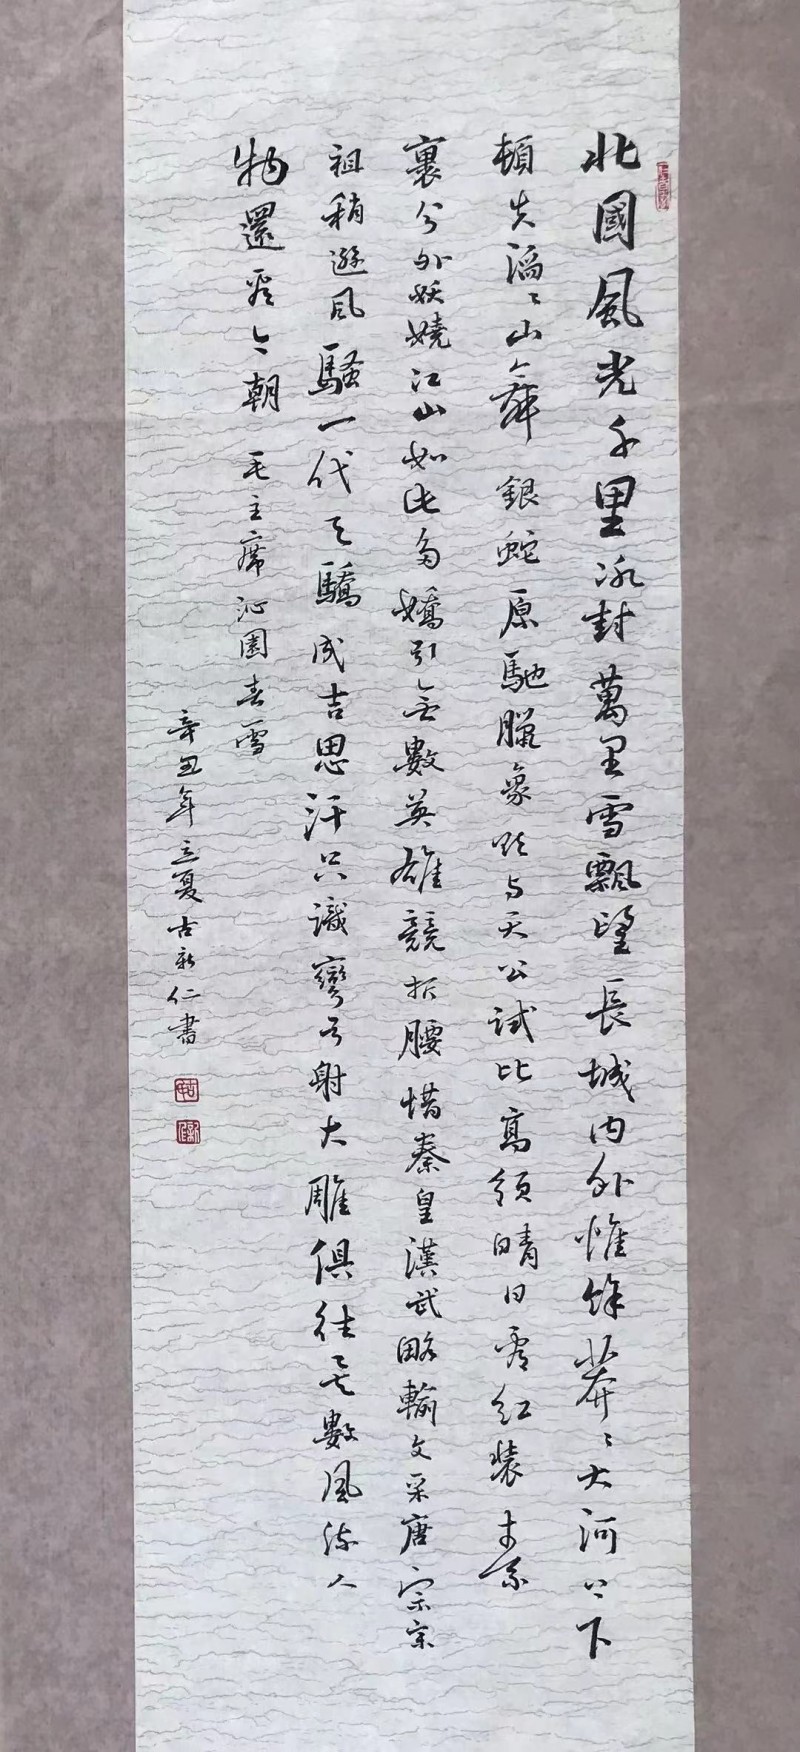 北國風光千里冰封萬里雪飄望長城内外惟餘莽〻大河上下
頓失滔〻山舞銀蛇原馳臘象欲与天公試比高須晴日看紅裝素
裹分外妖嬈江山如此多嬌引無數英雄競折腰惜秦皇漢武略輸文采唐宗宋
祖稍遜風騷一代天驕成吉思汗只識彎弓射大雕俱往矣數風流人
物還看今朝 毛主席沁園春雪
辛丑年立夏古新仁書